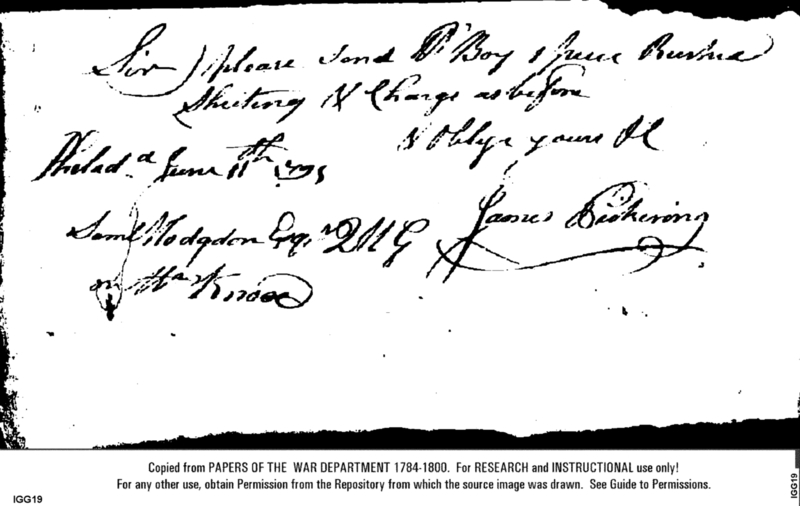 Sir) please send Pr Boy 1 piece Russia
Sheeting & Charge as before
& Oblige yours &c
Philad.a June 11th 1795
James Pickering
Saml Hodgdon Esqr QMG
or Mr Knox
Copied from PAPERS OF THE WAR DEPARTMENT 1784-1800. For RESEARCH and INSTRUCTIONAL use only!
For any other use, obtain Permission from the Repository from which the source image was drawn. See Guide to Permissions.
IGG19
IGG19